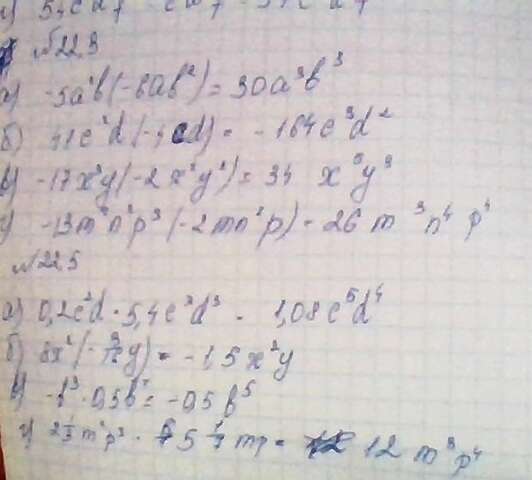 №22.3
а) -5a²b(-6ab²)=30a³b³
б) 41c²d(-4cd)= -164c³d²
в) -17x³y(-2x²y²)=34 x⁵y³
г) -13m²n²p³(-2mn²p)= 26 m³n⁴p⁴
№22.5
а) 0,2c²d · 5,4c³d³ = 1,08c⁵d⁴
б) 2x²(-3/4y)= -1,5x²y
в) -b³ · 0,5b²= -0,5b⁵
г) 2 1/3 m²p³ · 5 1/7 mp = 12 m³p⁴